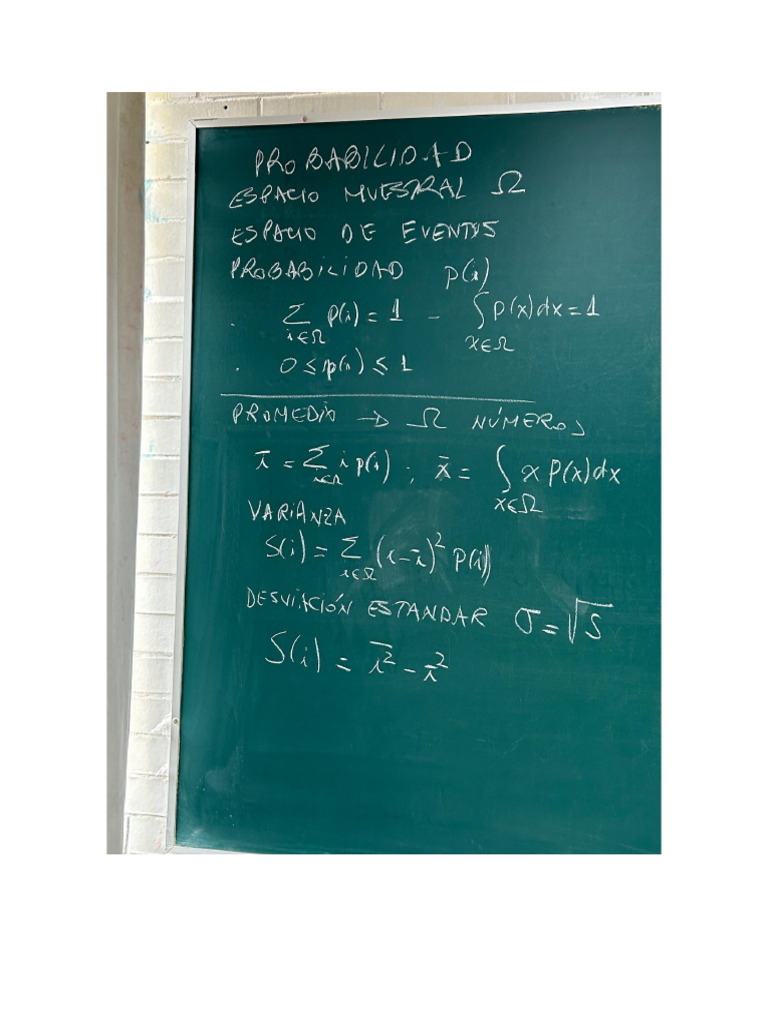 PROBABILIDAD
ESPACIO MUESTRAL Ω
ESPACIO DE EVENTOS
PROBABILIDAD p(i)
. Σ p(i) = 1 - ∫ p(x)dx = 1
i∈Ω x∈Ω
. 0 ≤ p(i) ≤ 1
PROMEDIO → Ω NÚMEROS
ī = Σ i p(i) ; x̄ = ∫ x p(x)dx
i∈Ω x∈Ω
VARIANZA
S(i) = Σ (i - ī)² p(i)
i∈Ω
DESVIACIÓN ESTANDAR σ = √S
S(i) = \overline{i²} - ī²